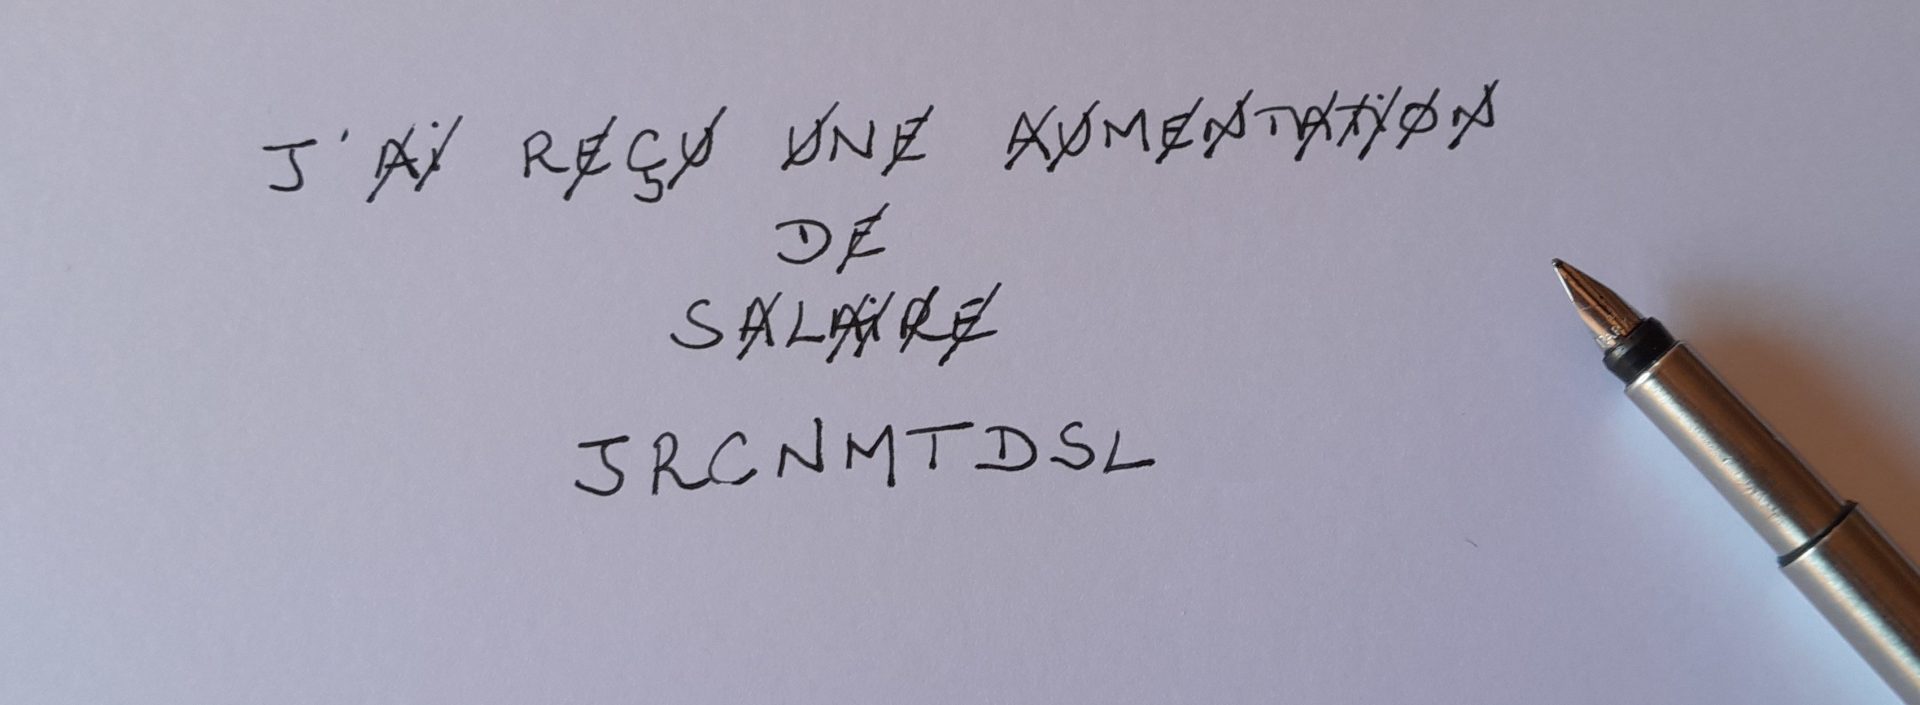 J'Ai REÇU UNE AUMENTATiON
DE
SALAiRE
JRCNMTDSL